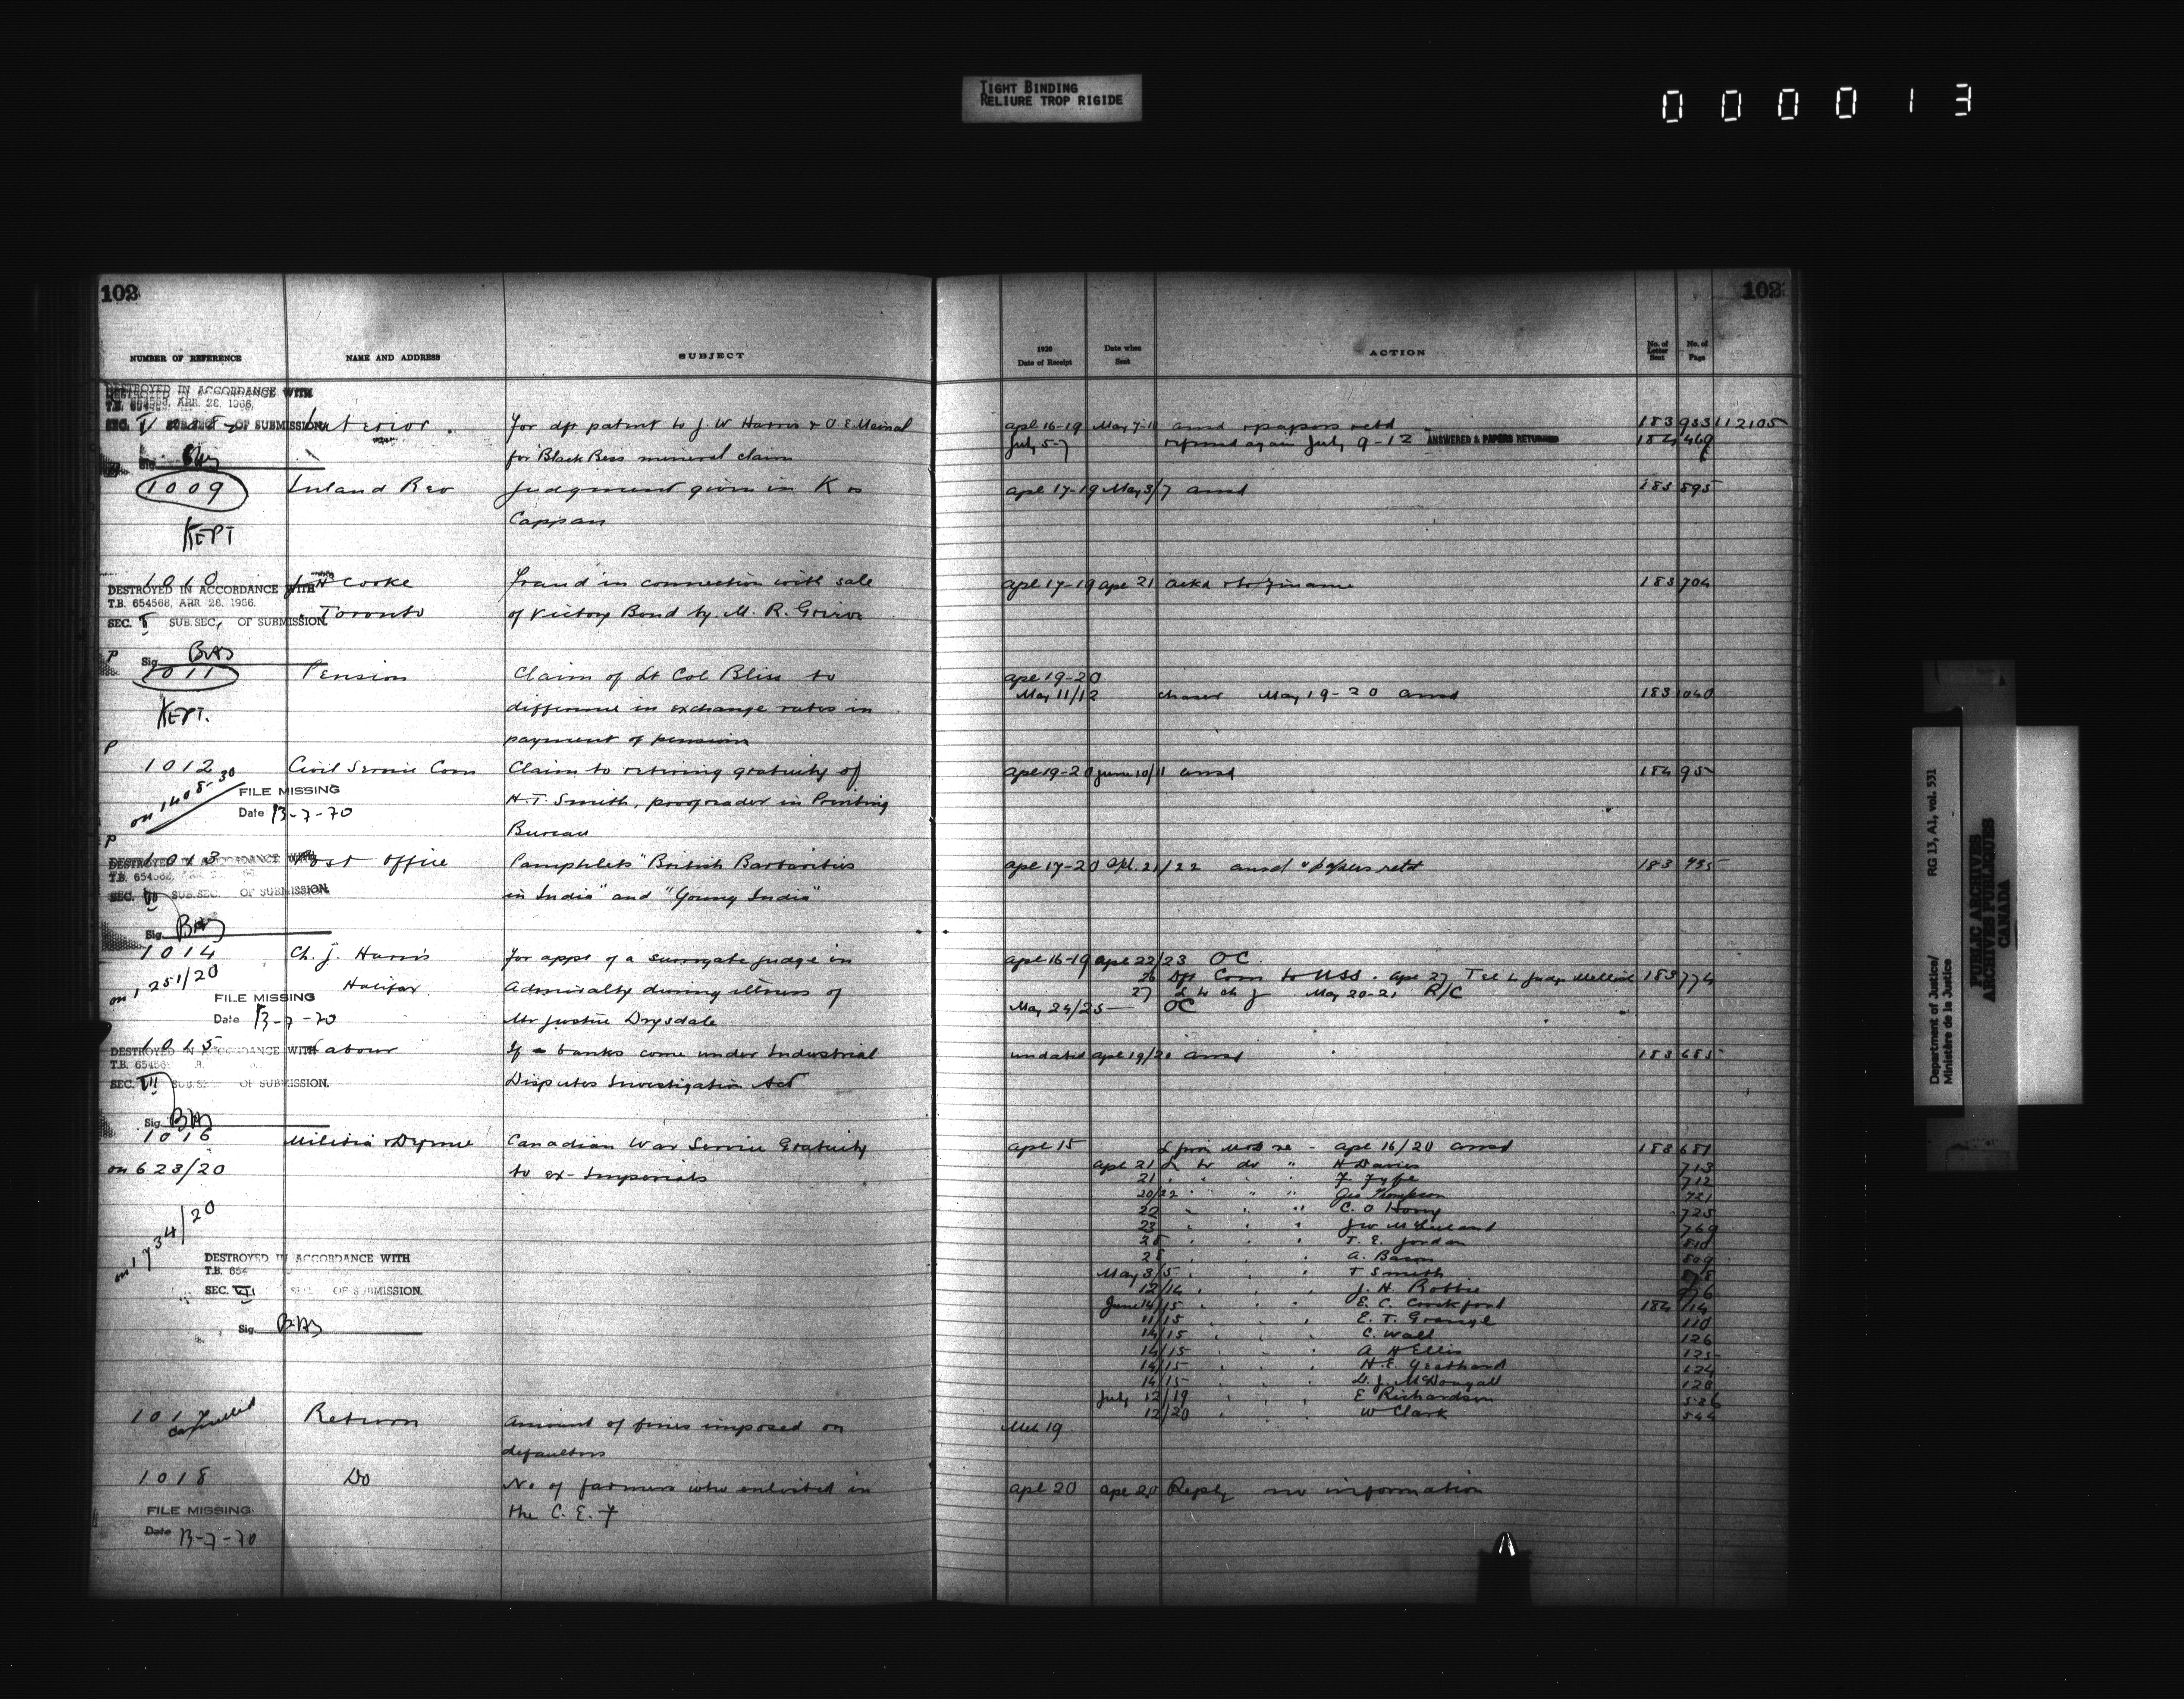 TIGHT BINDING
RELIURE TROP RIGIDE
000013
102
102
NUMBER OF REFERENCE
NAME AND ADDRESS
SUBJECT
1920
Date of Receipt
Date when
Sent
ACTION
No. of
Letter
Sent
No. of
Page
DESTROYED IN ACCORDANCE WITH
T.B. 654568, APR. 28, 1966.
SEC. SUB.SEC. OF SUBMISSION.
Sig.
Interior
For dft patent to J. W Harris & O. E.
for Black Bess mineral claim
Apl 16-19 May 7-11 ansd & papers retd 183 933 112105
July 5-7 again July 9-12 ANSWERED & PAPERS RETURNED 184 469
1009 Inland Rev Judgment given in K vs
Cappan
Apl 17-19 May 3/7 ansd 183 895
KEPT
1010 Cooke Fraud in connection with sale
Toronto of Victory Bond by M. R.
Apl 17-19 Apl 21 ackd & to Finance 183 704
DESTROYED IN ACCORDANCE WITH
T.B. 654568, APR. 28, 1966.
SEC. V SUB.SEC, OF SUBMISSION.
Sig. BAS
P
1011 Pension Claim of Lt Col Bliss to
difference in exchange rates in
payment of pension
Apl 19-20
May 11/12 chaser May 19-20 ansd 183 1040
KEPT.
P
1012 Civil Service Com Claim to retiring gratuity of
H. T. Smith, proofreader in Printing
Bureau
Apl 19-20 June 10/11 ansd 184 95
on 1408-30
FILE MISSING
Date 13-7-70
P
1013 Post Office Pamphlets "British Barbarities
in India" and "Young India"
Apl 17-20 Apl. 21/22 ansd & papers retd 183 735
DESTROYED IN ACCORDANCE WITH
T.B. 654568
SEC. VII SUB.SEC. OF SUBMISSION.
Sig. BAS
1014 Ch. J. Harris For appt of a surrogate judge in
Halifax Admiralty during illness of
Mr Justice Drysdale
Apl 16-19 Apl 22/23 OC.
26 Dft Com to USS. Apl 27 Tel to Judge Mellish 183 774
27 L to Ch J May 20-21 R/C
May 24/25 — OC
on 1251/20
FILE MISSING
Date 13-7-70
1015 Labour If banks come under Industrial
Disputes Investigation Act
undated Apl 19/20 ansd 183 685
DESTROYED IN ACCORDANCE WITH
T.B. 654568
SEC. VII SUB.SEC. OF SUBMISSION.
Sig. BAS
1016 Militia & Defence Canadian War Service Gratuity
to ex-Imperials
on 623/20
on 1734/20
Apl 15 L from Mod re - Apl 16/20 ansd 183 681
Apl 21 L to do " H Davies 713
21 F Fyfe 712
20/22 Geo Thompson 721
22 C. O 725
23 769
26 T. E. Jordan 810
28 A. Bacon 809
May 3/5 T Smith 878
12/14 J. H. Robbie 976
June 14/15 E. C. Crockford 184 114
11/15 E. T. 110
14/15 C. Wall 126
14/15 A H Ellis 125
14/15 H. E. 124
14/15 D. J. McDougall 128
July 12/19 E Richardson 536
12/20 W Clark 544
DESTROYED IN ACCORDANCE WITH
T.B. 654
SEC. VII SUB.SEC. OF SUBMISSION.
Sig. BAS
101 cancelled Return Amount of fines imposed on
defaulters
Mch 19
1018 Do No of farmers who enlisted in
the C. E. F
Apl 20 Apl 20 Reply no information
FILE MISSING
Date 13-7-70
Department of Justice/
Ministère de la Justice
RG 13, A1, vol. 531
PUBLIC ARCHIVES
ARCHIVES PUBLIQUES
CANADA